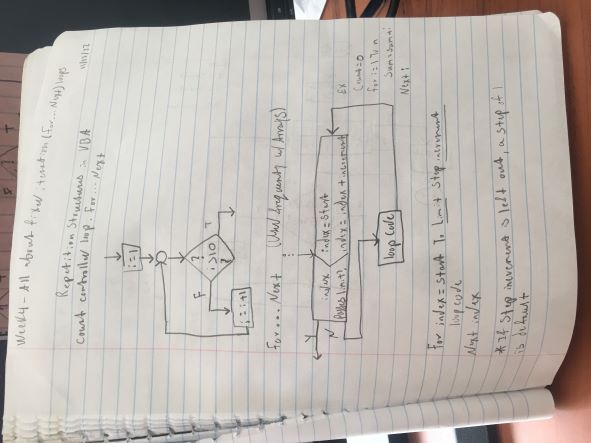 Week 4 - All about fixed iteration (for... Next) loops
Repetition Structures in VBA
Count controlled loop. for... Next
i=1
?
i>10
?
F
T
i = i+1
for... Next (Used frequently w/ Arrays)
Y
N
index
Passes limit?
index = start
index = index + increment
loop code
Ex
Count=0
for i=1 To n
Sum=sum+i
Next i
For index = start To Limit Step increment
loop code
Next index
* If Step increment is left out, a step of 1
is default